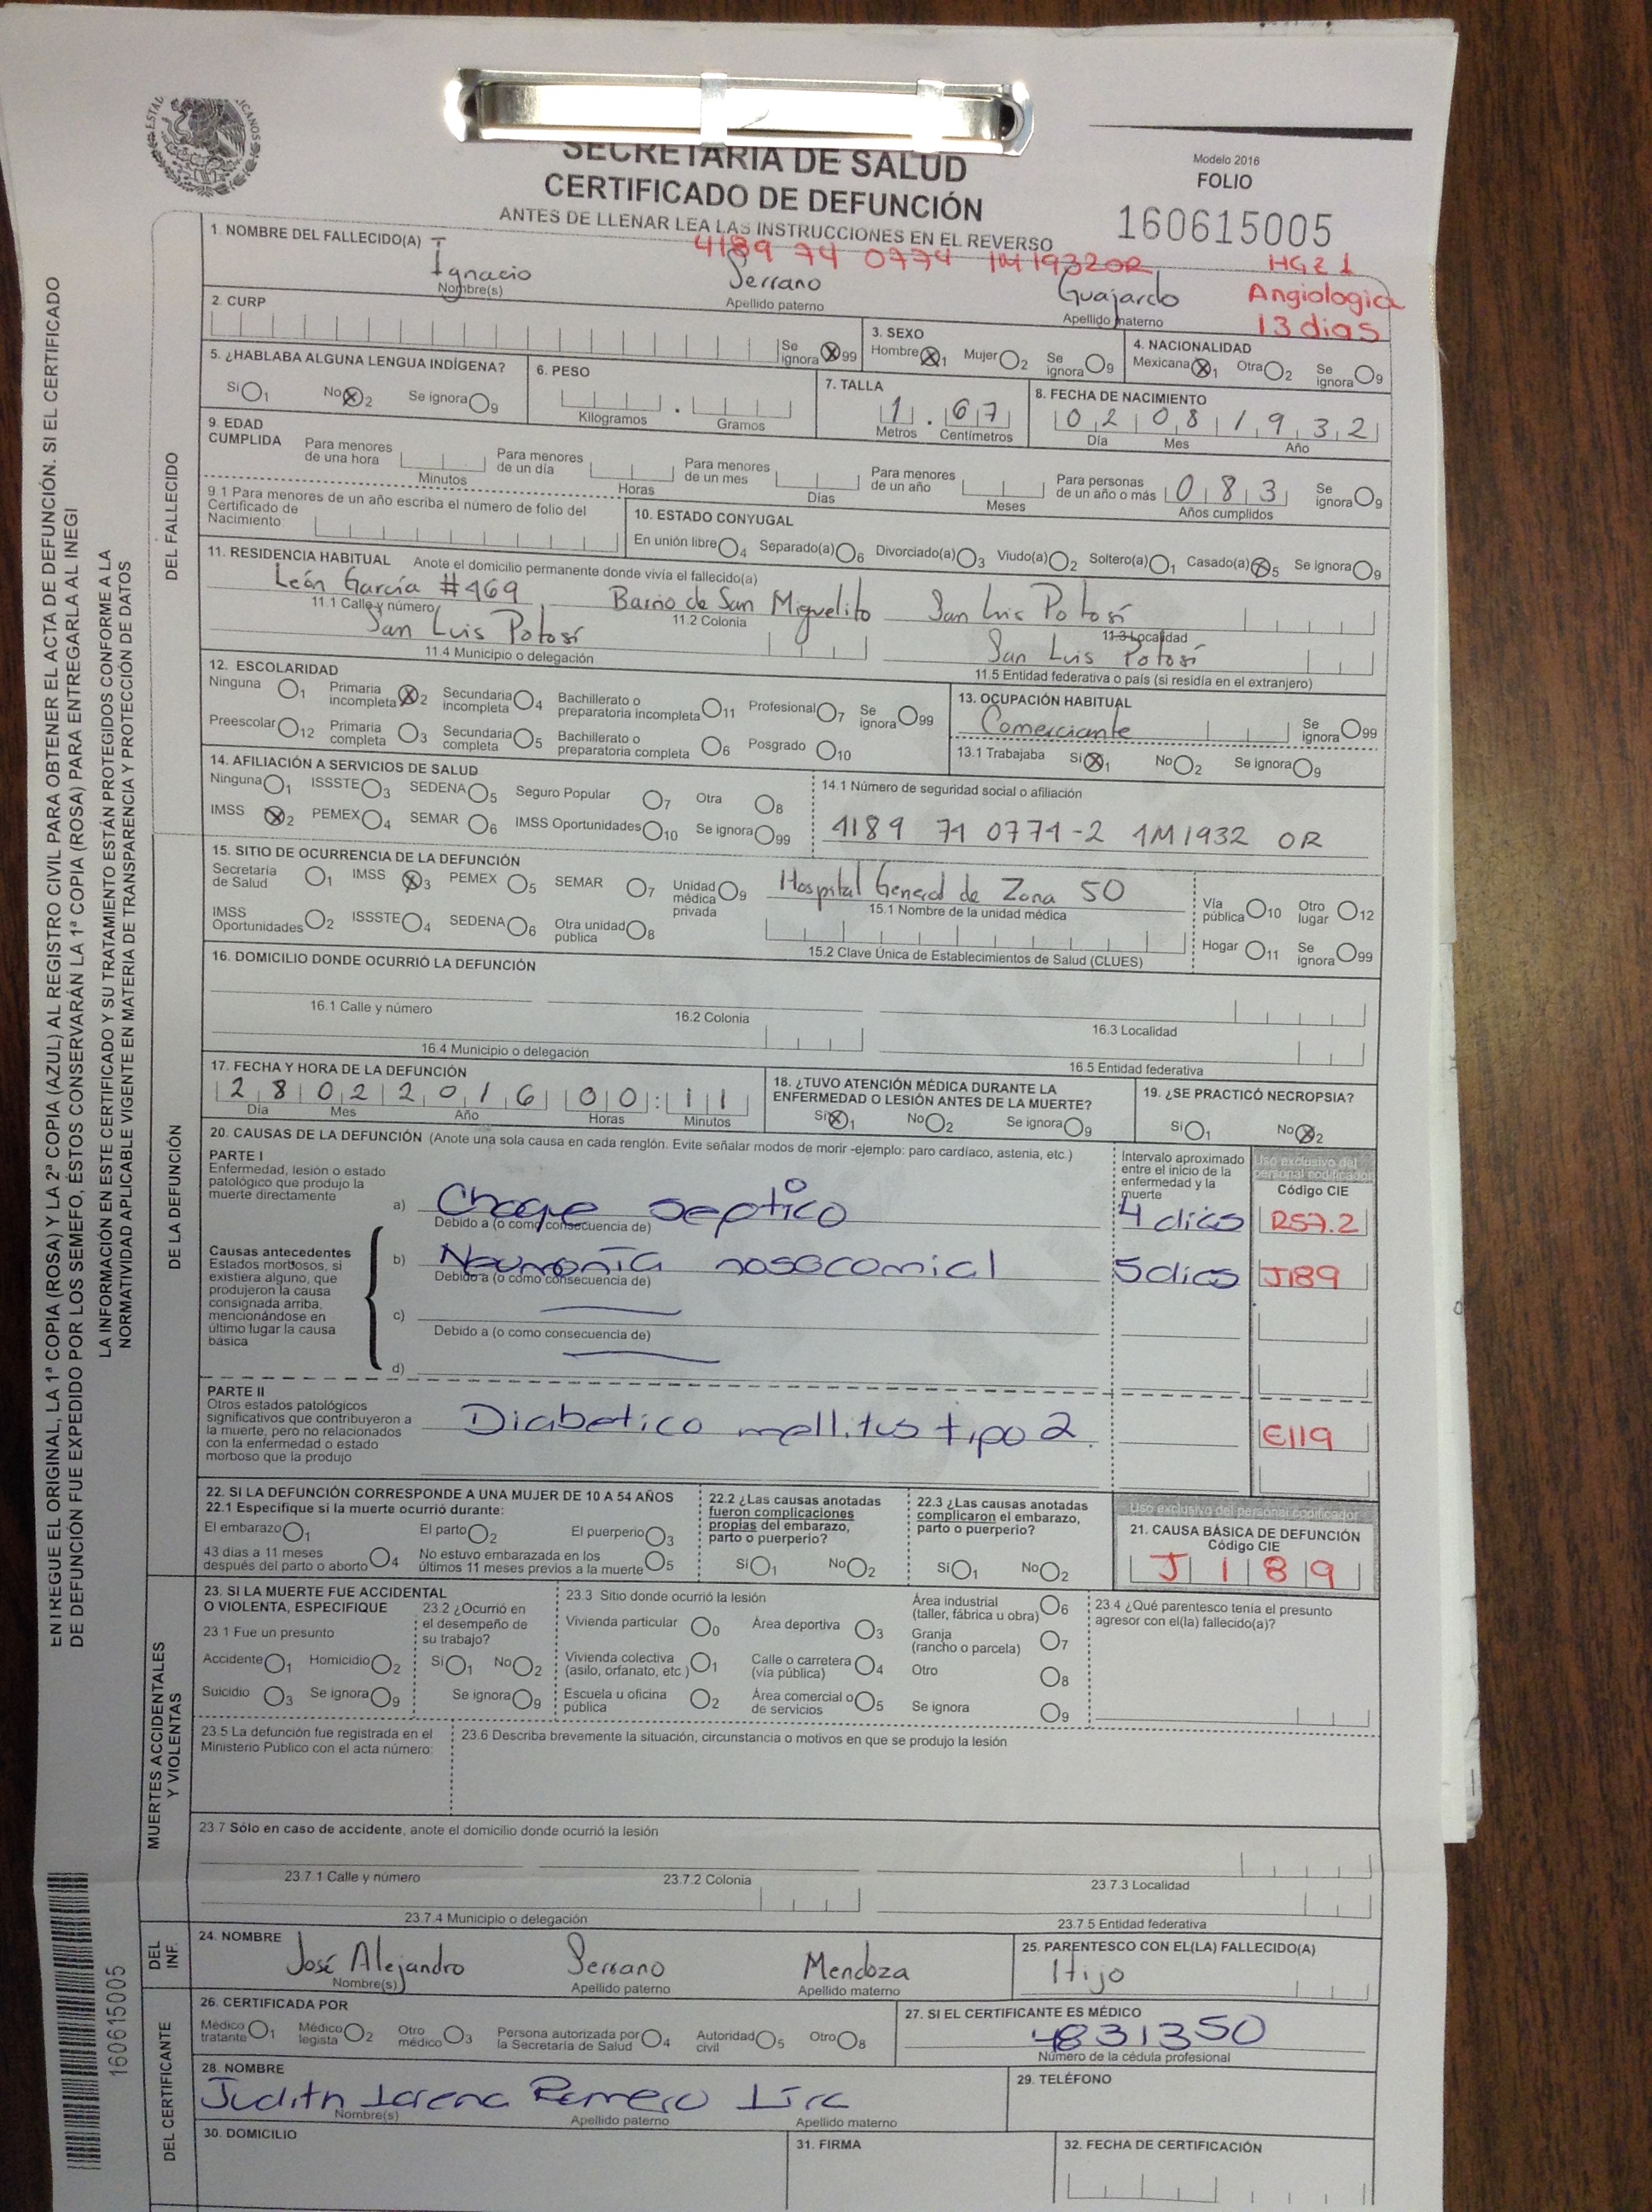 SECRETARÍA DE SALUD
CERTIFICADO DE DEFUNCIÓN
ANTES DE LLENAR LEA LAS INSTRUCCIONES EN EL REVERSO
Modelo 2016
FOLIO
160615005
4189 74 0774 1M1932OR
HGZ 1
Angiologia
13 dias
1. NOMBRE DEL FALLECIDO(A) Ignacio Serrano Guajardo
Nombre(s) Apellido paterno Apellido materno
2. CURP Se ignora 99
3. SEXO Hombre 1 Mujer 2 Se ignora 9
4. NACIONALIDAD Mexicana 1 Otra 2 Se ignora 9
5. ¿HABLABA ALGUNA LENGUA INDÍGENA?
Sí 1 No 2 Se ignora 9
6. PESO
Kilogramos Gramos
7. TALLA
1 . 67
Metros Centímetros
8. FECHA DE NACIMIENTO
02 08 1932
Día Mes Año
9. EDAD CUMPLIDA
Para menores de una hora Minutos
Para menores de un día Horas
Para menores de un mes Días
Para menores de un año Meses
Para personas de un año o más 083 Años cumplidos
Se ignora 9
9.1 Para menores de un año escriba el número de folio del Certificado de Nacimiento:
10. ESTADO CONYUGAL
En unión libre 4 Separado(a) 6 Divorciado(a) 3 Viudo(a) 2 Soltero(a) 1 Casado(a) 5 Se ignora 9
11. RESIDENCIA HABITUAL Anote el domicilio permanente donde vivía el fallecido(a)
León García #469 Barrio de San Miguelito San Luis Potosí
11.1 Calle y número 11.2 Colonia 11.3 Localidad
San Luis Potosí San Luis Potosí
11.4 Municipio o delegación 11.5 Entidad federativa o país (si residía en el extranjero)
12. ESCOLARIDAD
Ninguna 1 Primaria incompleta 2 Secundaria incompleta 4 Bachillerato o preparatoria incompleta 11 Profesional 7 Se ignora 99
Preescolar 12 Primaria completa 3 Secundaria completa 5 Bachillerato o preparatoria completa 6 Posgrado 10
13. OCUPACIÓN HABITUAL
Comerciante Se ignora 99
13.1 Trabajaba Sí 1 No 2 Se ignora 9
14. AFILIACIÓN A SERVICIOS DE SALUD
Ninguna 1 ISSSTE 3 SEDENA 5 Seguro Popular 7 Otra 8
IMSS 2 PEMEX 4 SEMAR 6 IMSS Oportunidades 10 Se ignora 99
14.1 Número de seguridad social o afiliación
4189 74 0774-2 1M1932 OR
15. SITIO DE OCURRENCIA DE LA DEFUNCIÓN
Secretaría de Salud 1 IMSS 3 PEMEX 5 SEMAR 7 Unidad médica privada 9
IMSS Oportunidades 2 ISSSTE 4 SEDENA 6 Otra unidad pública 8
Hospital General de Zona 50
15.1 Nombre de la unidad médica
15.2 Clave Única de Establecimientos de Salud (CLUES)
Vía pública 10 Otro lugar 12
Hogar 11 Se ignora 99
16. DOMICILIO DONDE OCURRIÓ LA DEFUNCIÓN
16.1 Calle y número 16.2 Colonia 16.3 Localidad
16.4 Municipio o delegación 16.5 Entidad federativa
17. FECHA Y HORA DE LA DEFUNCIÓN
28 02 2016 00:11
Día Mes Año Horas Minutos
18. ¿TUVO ATENCIÓN MÉDICA DURANTE LA ENFERMEDAD O LESIÓN ANTES DE LA MUERTE?
Sí 1 No 2 Se ignora 9
19. ¿SE PRACTICÓ NECROPSIA?
Sí 1 No 2
20. CAUSAS DE LA DEFUNCIÓN (Anote una sola causa en cada renglón. Evite señalar modos de morir -ejemplo: paro cardíaco, astenia, etc.)
Intervalo aproximado entre el inicio de la enfermedad y la muerte
Uso exclusivo del personal codificador
Código CIE
PARTE I
Enfermedad, lesión o estado patológico que produjo la muerte directamente
a) Choque septico 4 dias R57.2
Debido a (o como consecuencia de)
Causas antecedentes
Estados morbosos, si existiera alguno, que produjeron la causa consignada arriba, mencionándose en último lugar la causa básica
b) Neumonía nosocomial 5 dias J189
Debido a (o como consecuencia de)
c)
Debido a (o como consecuencia de)
d)
PARTE II
Otros estados patológicos significativos que contribuyeron a la muerte, pero no relacionados con la enfermedad o estado morboso que la produjo
Diabetico mellitus tipo 2. E119
22. SI LA DEFUNCIÓN CORRESPONDE A UNA MUJER DE 10 A 54 AÑOS
22.1 Especifique si la muerte ocurrió durante:
El embarazo 1 El parto 2 El puerperio 3
43 días a 11 meses después del parto o aborto 4 No estuvo embarazada en los últimos 11 meses previos a la muerte 5
22.2 ¿Las causas anotadas fueron complicaciones propias del embarazo, parto o puerperio?
Sí 1 No 2
22.3 ¿Las causas anotadas complicaron el embarazo, parto o puerperio?
Sí 1 No 2
Uso exclusivo del personal codificador
21. CAUSA BÁSICA DE DEFUNCIÓN
Código CIE
J189
23. SI LA MUERTE FUE ACCIDENTAL O VIOLENTA, ESPECIFIQUE
23.1 Fue un presunto
Accidente 1 Homicidio 2
Suicidio 3 Se ignora 9
23.2 ¿Ocurrió en el desempeño de su trabajo?
Sí 1 No 2
Se ignora 9
23.3 Sitio donde ocurrió la lesión
Vivienda particular 0 Área deportiva 3 Área industrial (taller, fábrica u obra) 6
Vivienda colectiva (asilo, orfanato, etc.) 1 Calle o carretera (vía pública) 4 Granja (rancho o parcela) 7
Escuela u oficina pública 2 Área comercial o de servicios 5 Otro 8
Se ignora 9
23.4 ¿Qué parentesco tenía el presunto agresor con el(la) fallecido(a)?
23.5 La defunción fue registrada en el Ministerio Público con el acta número:
23.6 Describa brevemente la situación, circunstancia o motivos en que se produjo la lesión
23.7 Sólo en caso de accidente, anote el domicilio donde ocurrió la lesión
23.7.1 Calle y número 23.7.2 Colonia 23.7.3 Localidad
23.7.4 Municipio o delegación 23.7.5 Entidad federativa
24. NOMBRE José Alejandro Serrano Mendoza
Nombre(s) Apellido paterno Apellido materno
25. PARENTESCO CON EL(LA) FALLECIDO(A)
Hijo
26. CERTIFICADA POR
Médico tratante 1 Médico legista 2 Otro médico 3 Persona autorizada por la Secretaría de Salud 4 Autoridad civil 5 Otro 8
27. SI EL CERTIFICANTE ES MÉDICO
4831350
Número de la cédula profesional
28. NOMBRE
Judith Lorena Romero Lira
Nombre(s) Apellido paterno Apellido materno
29. TELÉFONO
30. DOMICILIO
31. FIRMA
32. FECHA DE CERTIFICACIÓN
DEL FALLECIDO
DE LA DEFUNCIÓN
MUERTES ACCIDENTALES Y VIOLENTAS
DEL INF.
DEL CERTIFICANTE
ENTREGUE EL ORIGINAL, LA 1ª COPIA (ROSA) Y LA 2ª COPIA (AZUL) AL REGISTRO CIVIL PARA OBTENER EL ACTA DE DEFUNCIÓN. SI EL CERTIFICADO
DE DEFUNCIÓN FUE EXPEDIDO POR LOS SEMEFO, ÉSTOS CONSERVARÁN LA 1ª COPIA (ROSA) PARA ENTREGARLA AL INEGI
LA INFORMACIÓN EN ESTE CERTIFICADO Y SU TRATAMIENTO ESTÁN PROTEGIDOS CONFORME A LA
NORMATIVIDAD APLICABLE VIGENTE EN MATERIA DE TRANSPARENCIA Y PROTECCIÓN DE DATOS
160615005